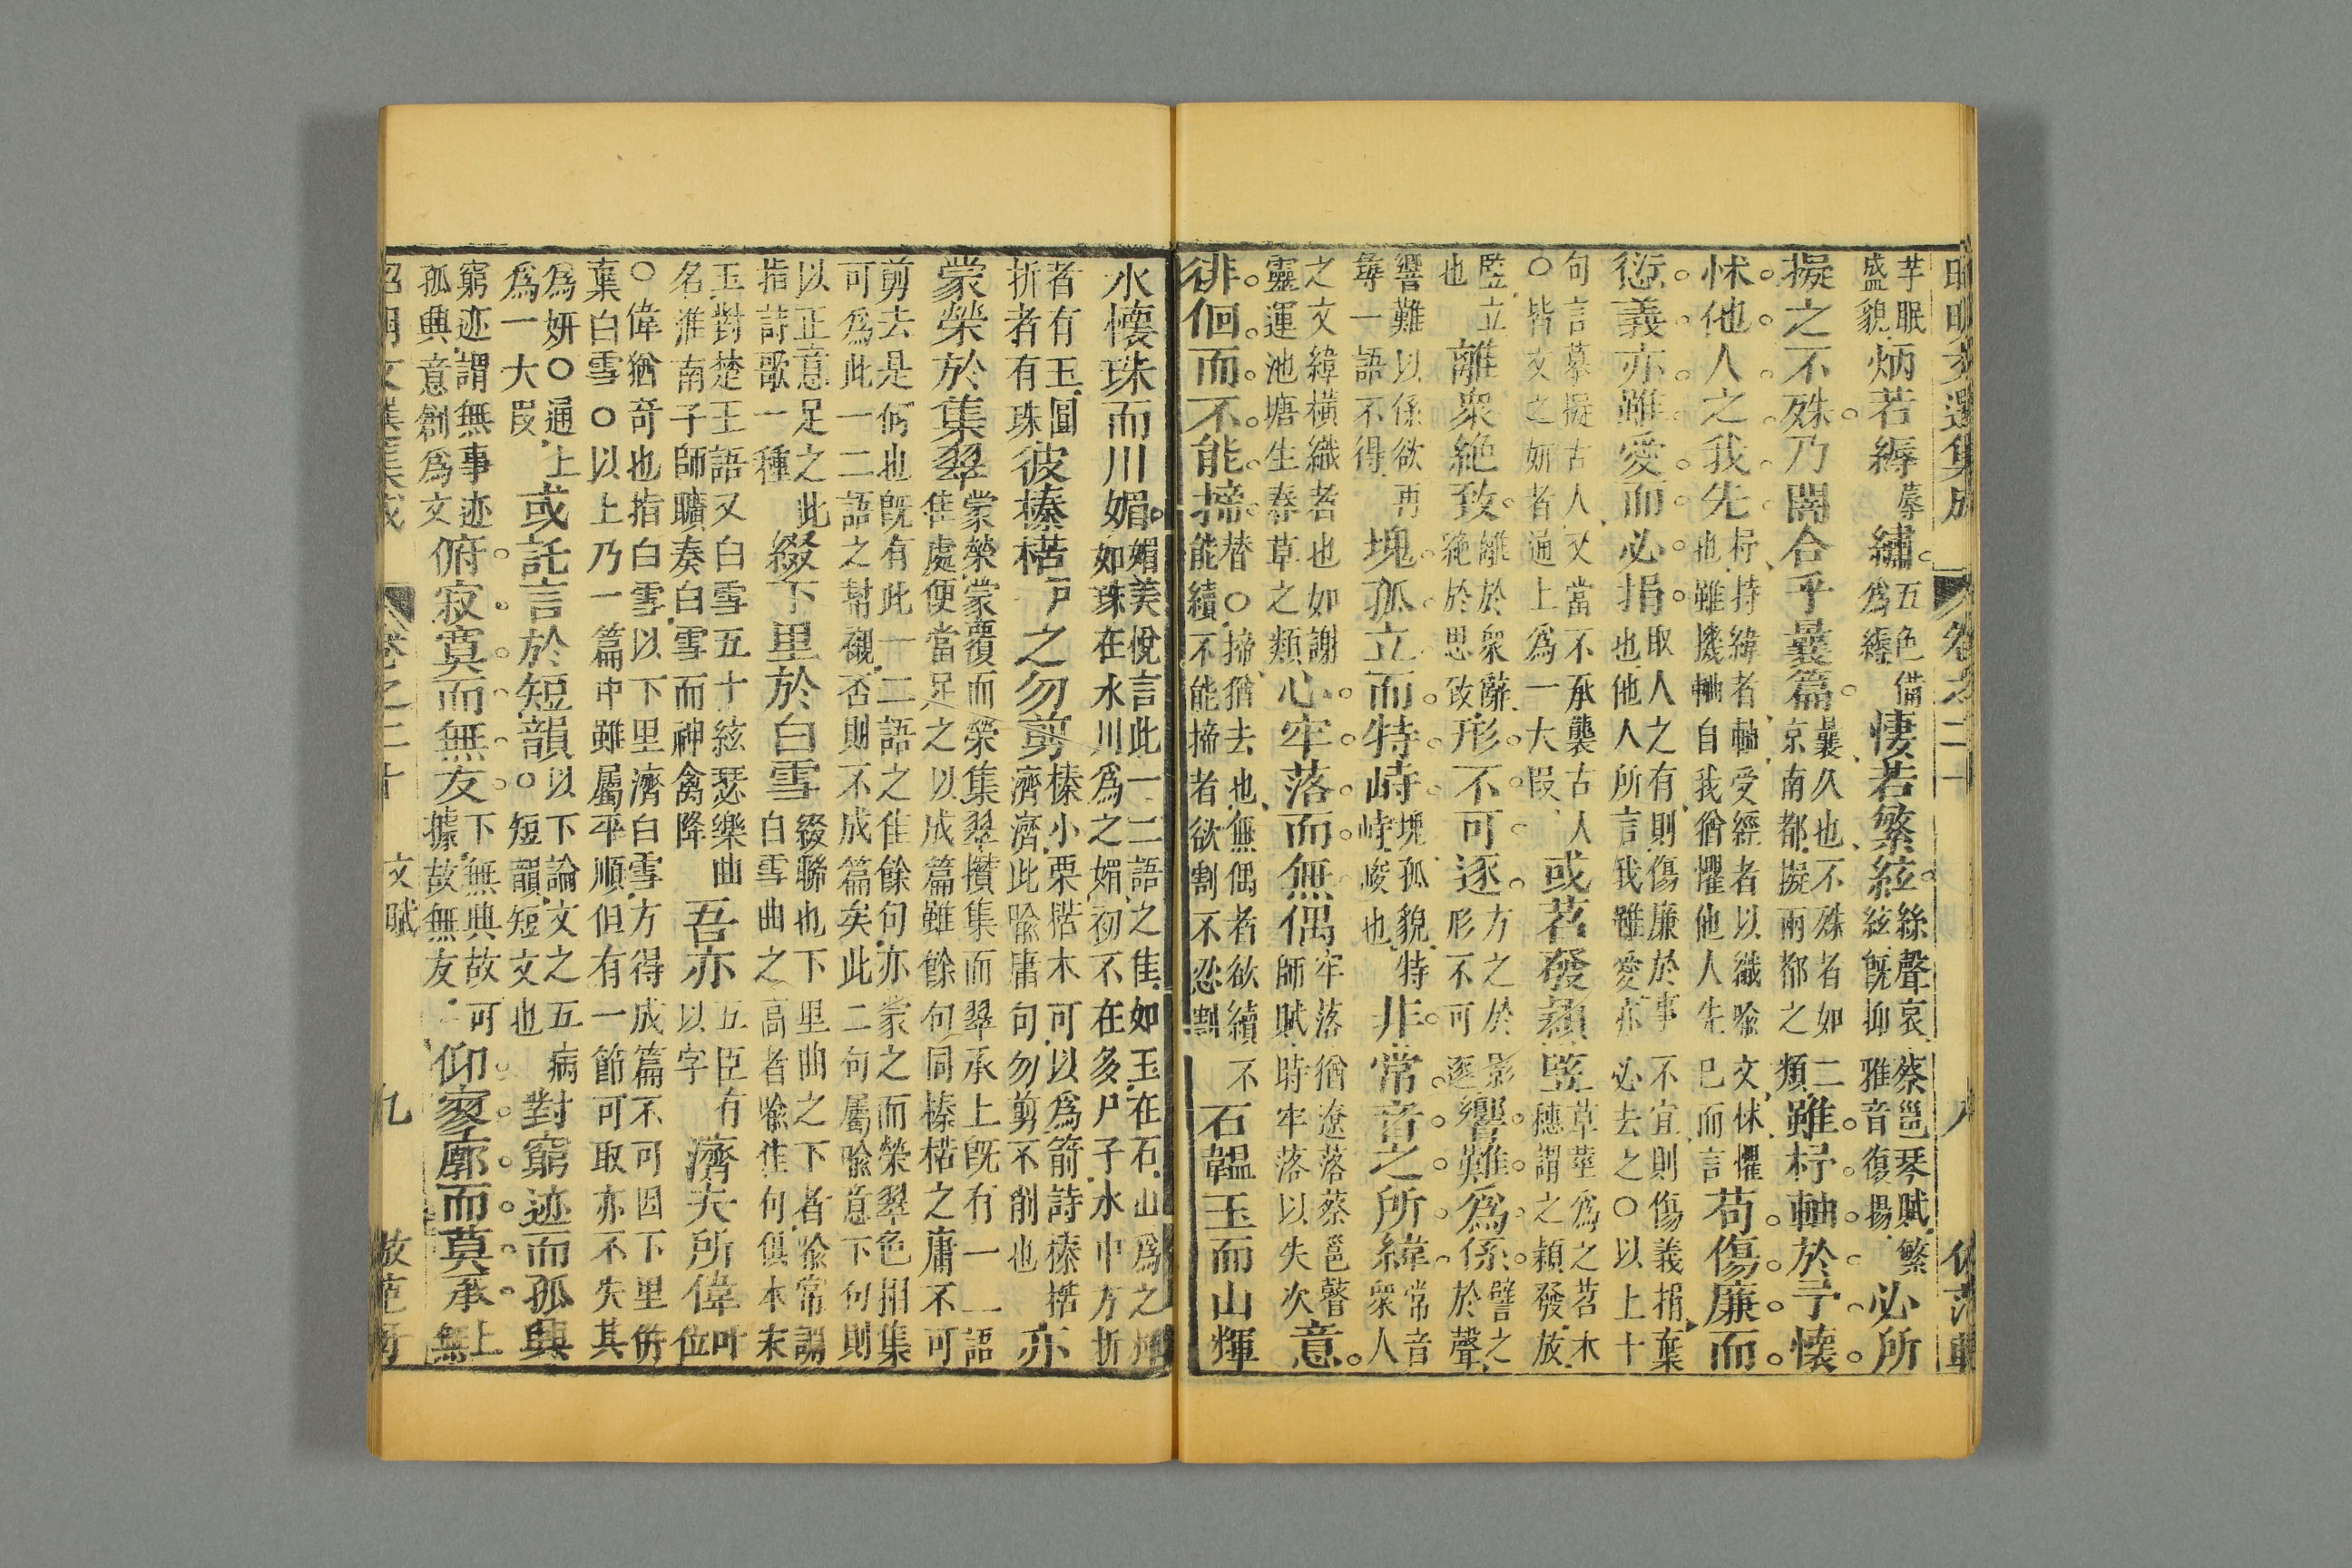 昭明文選集成　卷之二十　八　仿范軒
芊眠盛貌炳若縟蓐繡五色備爲縟悽若繁絃絲聲哀蔡邕琴賦繁絃旣抑雅音復揚必所
擬之不殊乃闇合乎曩篇曩久也不殊者如二京南都擬兩都之類雖杼軸於予懷
怵他人之我先杼持緯者軸受經者以織喻文怵懼也雖機軸自我猶懼他人先已而言苟傷廉而
愆義亦雖愛而必捐取人之有則傷廉於事不宜則傷義捐棄也他人所言我雖愛亦必去之○以上十
句言摹擬古人文當不承襲古人○皆文之妍者通上爲一大段或苕發穎豎草莖爲之苕木穗謂之穎發放
豎立也離衆絶致離於衆辭絶於思致形不可逐方之於影形不可逐響難爲係譬之於聲
響難以係欲再尋一語不得塊孤立而特峙塊孤貌特峙峻也非常音之所緯常音衆人
之文緯橫織者也如謝靈運池塘生春草之類心牢落而無偶牢落猶遼落蔡邕瞽師賦時牢落以失次意
徘徊而不能揥替○揥猶去也無偶者欲續不能續不能揥者欲割不忍割石韞玉而山輝
水懷珠而川媚媚美悅言此一二語之佳如玉在石山爲之輝如珠在水川爲之媚初不在多尸子水中方折
者有玉圓折者有珠彼榛楛戶之勿剪榛小栗楛木可以爲箭詩榛楛濟濟此喻庸句勿剪不削也亦
蒙榮於集翠蒙榮蒙覆而榮集翠攢集而翠承上旣有一二語佳處便當足之以成篇雖餘句同榛楛之庸不可
剪去是何也旣有此一二語之佳餘句亦蒙之而榮翠色相集可爲此一二語之幇襯否則不成篇矣此二句屬喻意下句則
以正意足之此指詩歌一種綴下里於白雪綴聯也下里曲之下者喻常調白雪曲之高者喻佳句俱本宋
玉對楚王語又白雪五十絃瑟樂曲名淮南子師曠奏白雪而神禽降吾亦五臣有以字濟夫所偉叶位
○偉猶奇也指白雪以下里濟白雪方得成篇不可因下里倂棄白雪○以上乃一篇中雖屬平順但有一節可取亦不失其
爲妍○通上爲一大段或託言於短韻以下論文之五病○短韻短文也對窮迹而孤興
窮迹謂無事迹孤興意創爲文俯寂寞而無友下無興故可據故無友仰寥廓而莫承上無
昭明文選集成　卷之二十　文賦　九　仿范軒